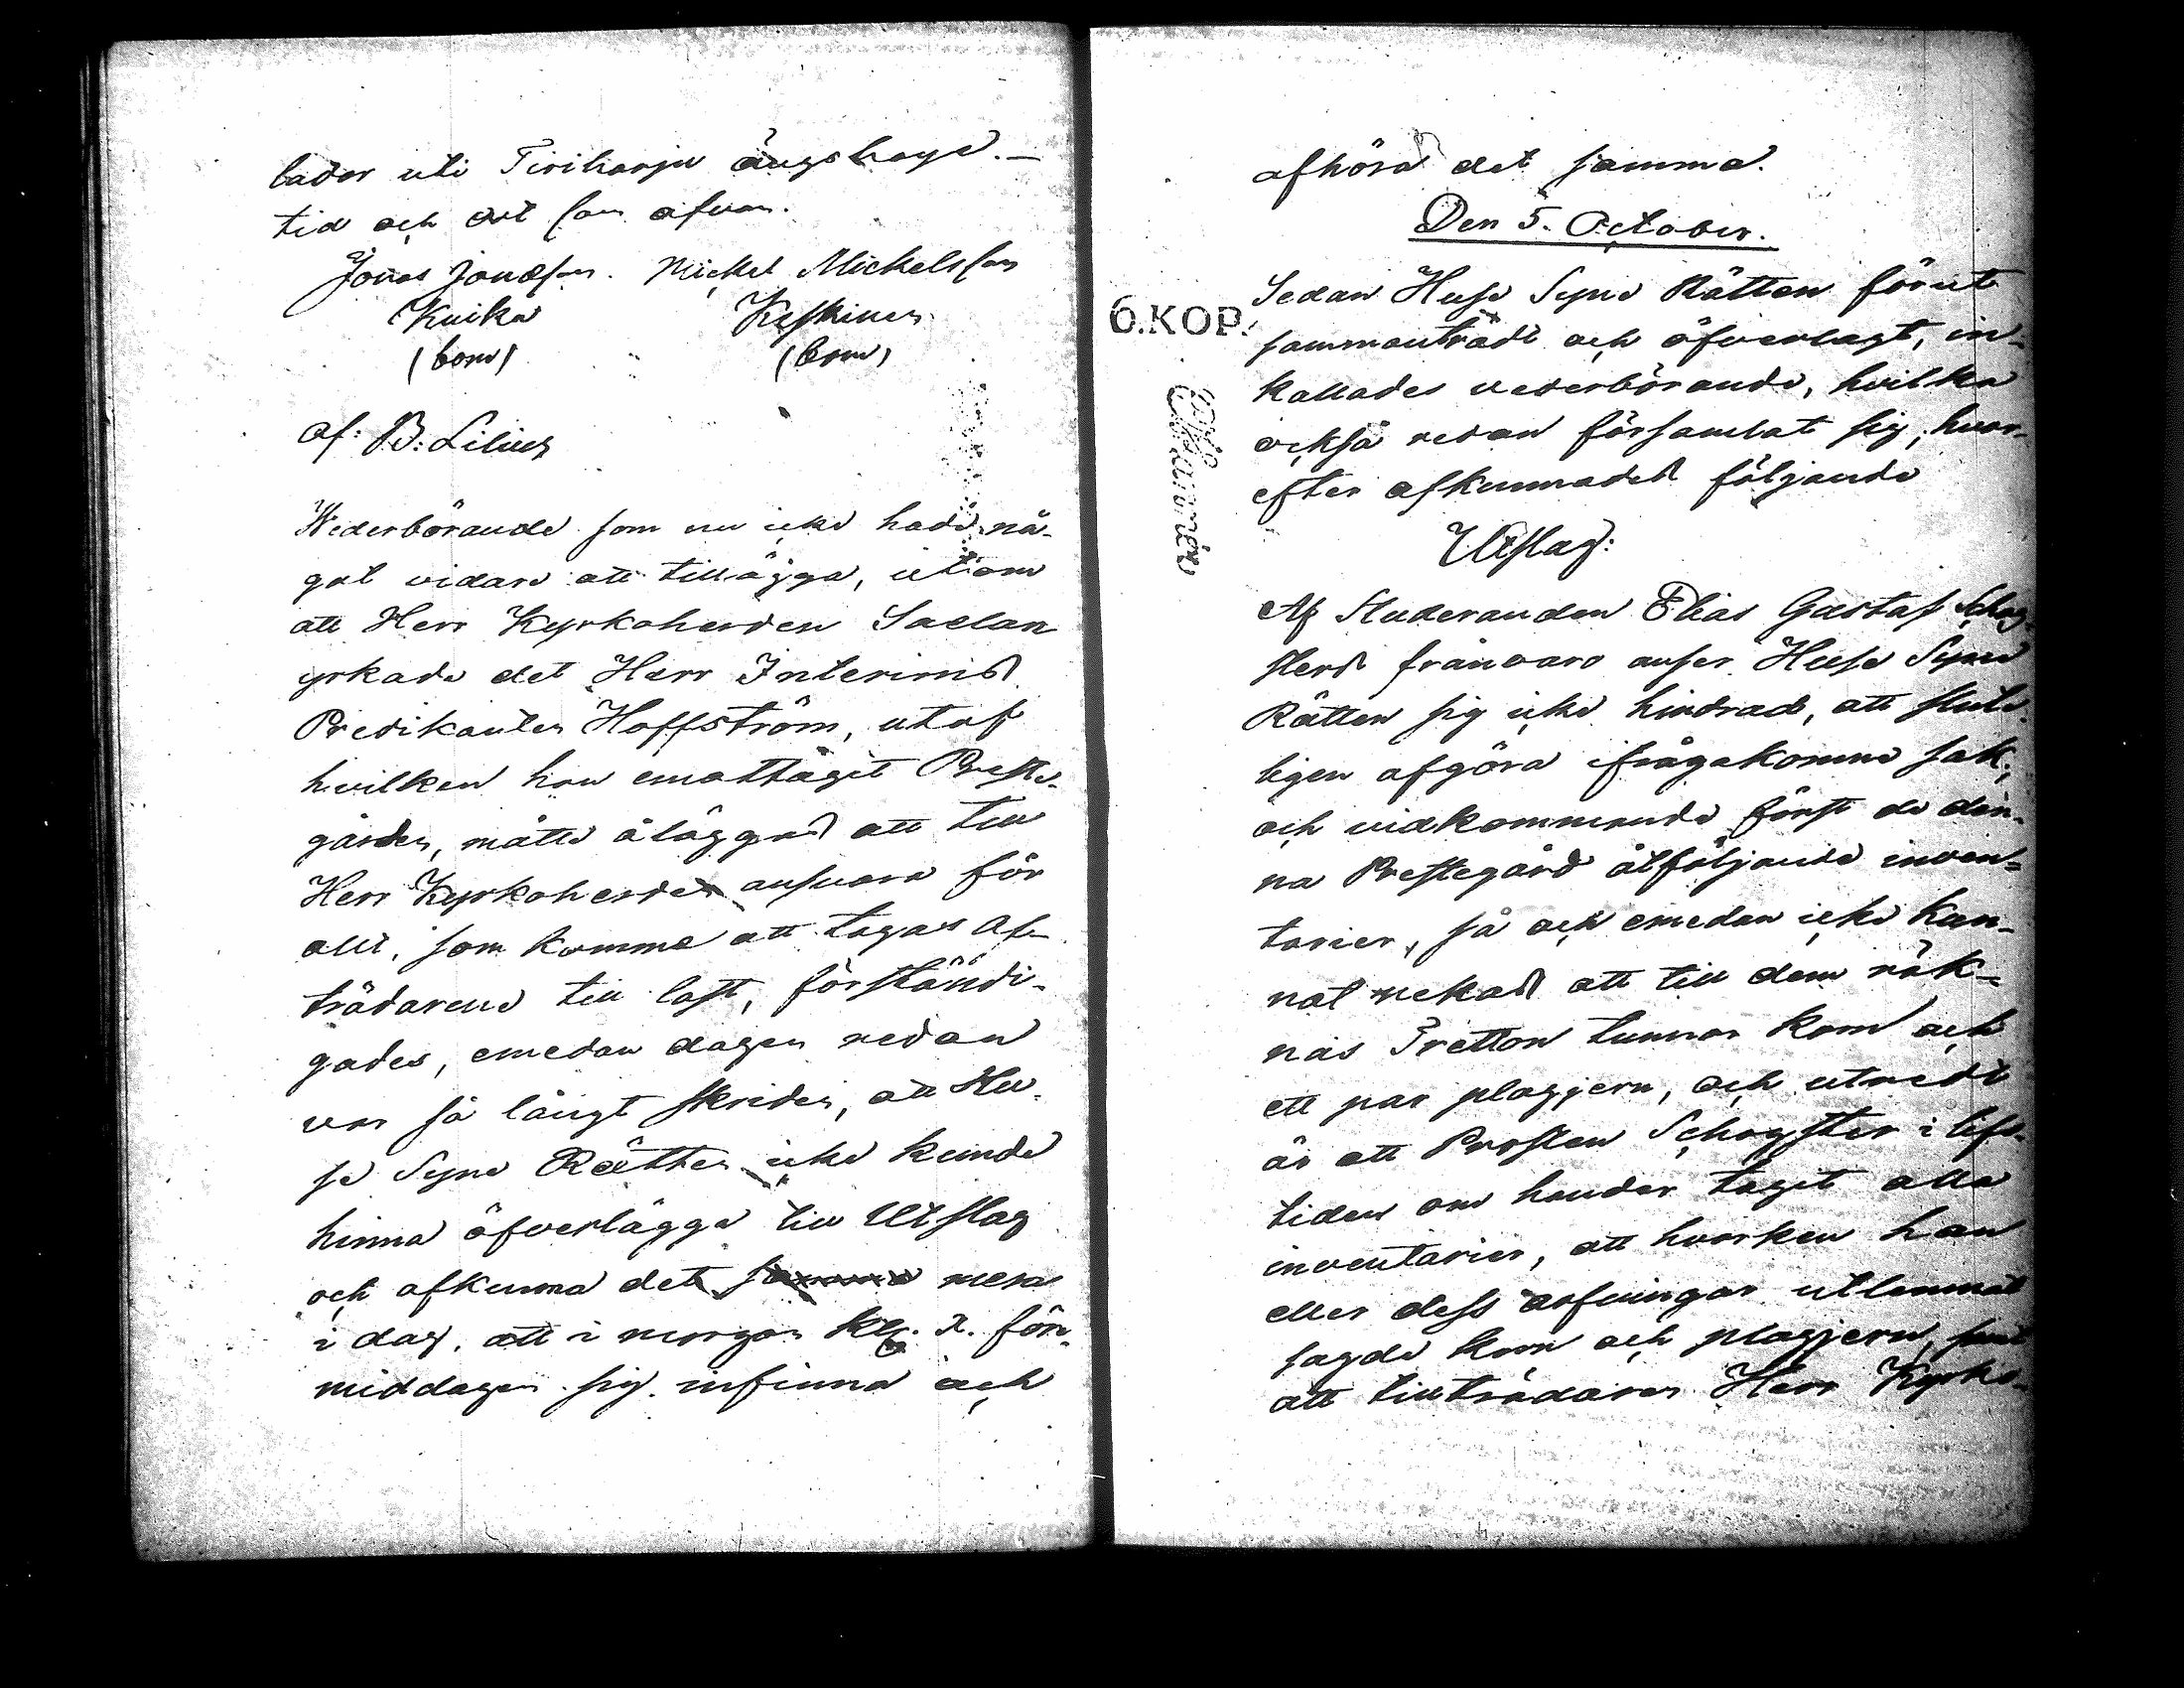 lador uti Tiriharju ängshage.—
tid och ort som ofvan.
Jonas Jonasson. Mickel Mickelsson
Kuika Keskinen
(bom) (bom)
af: B: Lilius
Wederbörande som nu icke hade nå-
got vidare att tillägga, utom
att Herr Kyrkoherden Saelan
yrkade det Herr Interims
Predikanten Hoffström, utaf
hvilken han emottagit Preste-
gården, måtte åläggas att till
Herr Kyrkoherden ansvara för
allt, som komme att tagas Af-
trädarene till last, förständi-
gades, emedan dagen redan
var så långt skriden, att Hu-
se Syne Rätten icke kunde
hinna öfverlägga till Utslag
och afkunna det samma mera
i dag, att i morgon Kl. X. för-
middagen sig infinna och
afhöra det samma.
Den 5. October.
Sedan Huse Syne Rätten förut
sammanträdt och öfverlagt, in-
kallades vederbörande, hvilka
också redan församlat sig, hvar-
efter afkunnades följande
Utslag:
Af Studeranden Elias Gustaf Schog-
sters frånvaro anser Huse Syne
Rätten sig icke hindrad, att slute-
ligen afgöra ifrågakomne sak;
och vidkommande först de den-
na Prestegård åtföljande inven-
tarier, så och emedan icke kun-
nat nekas att till dem räk-
nas Tretton tunnor korn och
ett par plogjern, och utredt
är att Prosten Schogster i lifs-
tiden om händer tagit alla
inventarier, att hvarken han
eller dess arfvingar utlemnat
sagde korn och plogjern, samt
att tillträdaren Herr Kyrko-
6.KOP.